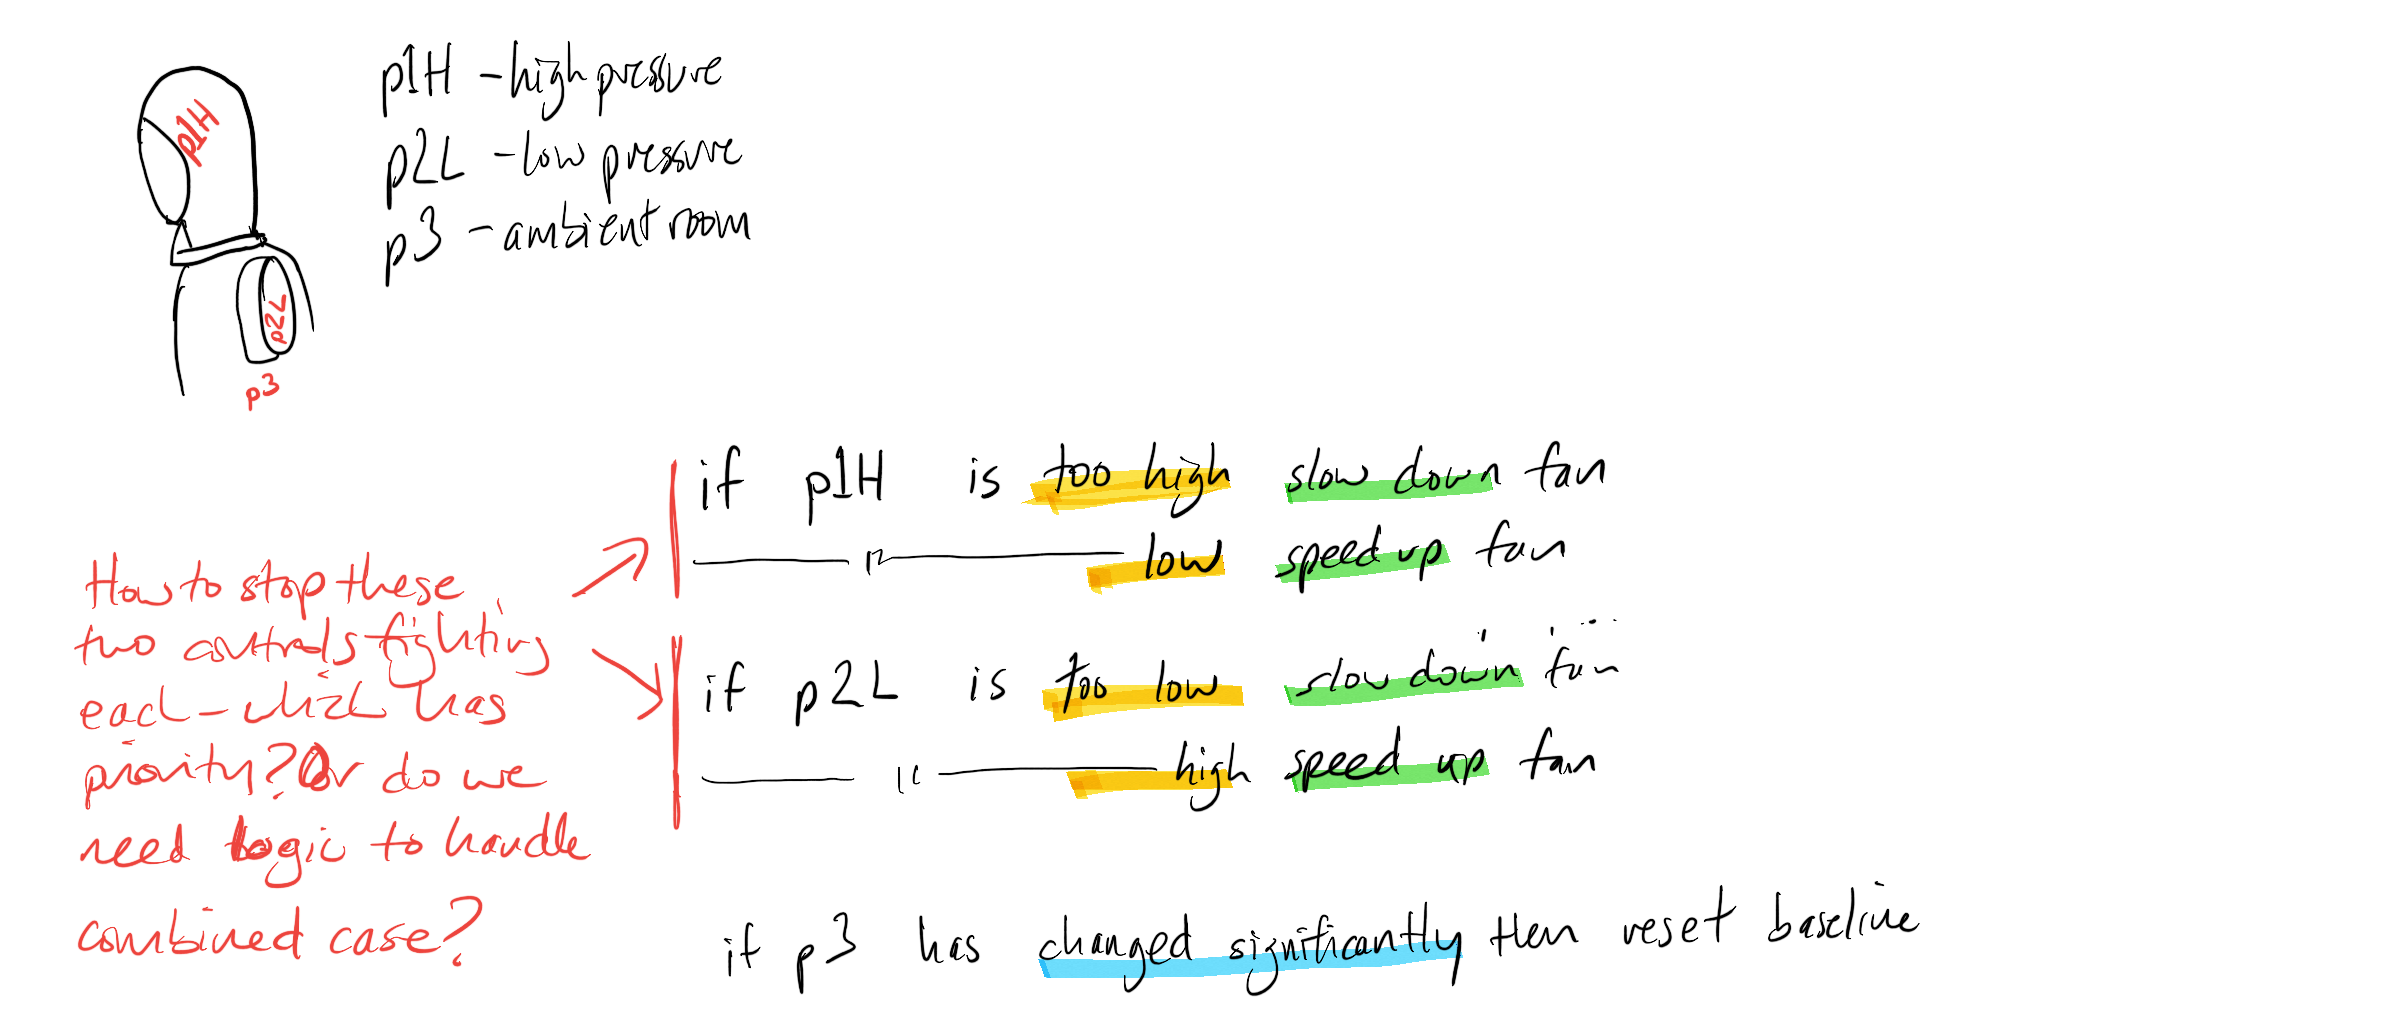 p1H - high pressure
p2L - low pressure
p3 - ambient room
p1H
p2L
p3
if p1H is too high slow down fan
—— " —— low speed up fan
if p2L is too low slow down fan
—— " —— high speed up fan
How to stop these
two controls fighting
each - which has
priority? Or do we
need logic to handle
combined case?
if p3 has changed significantly then reset baseline